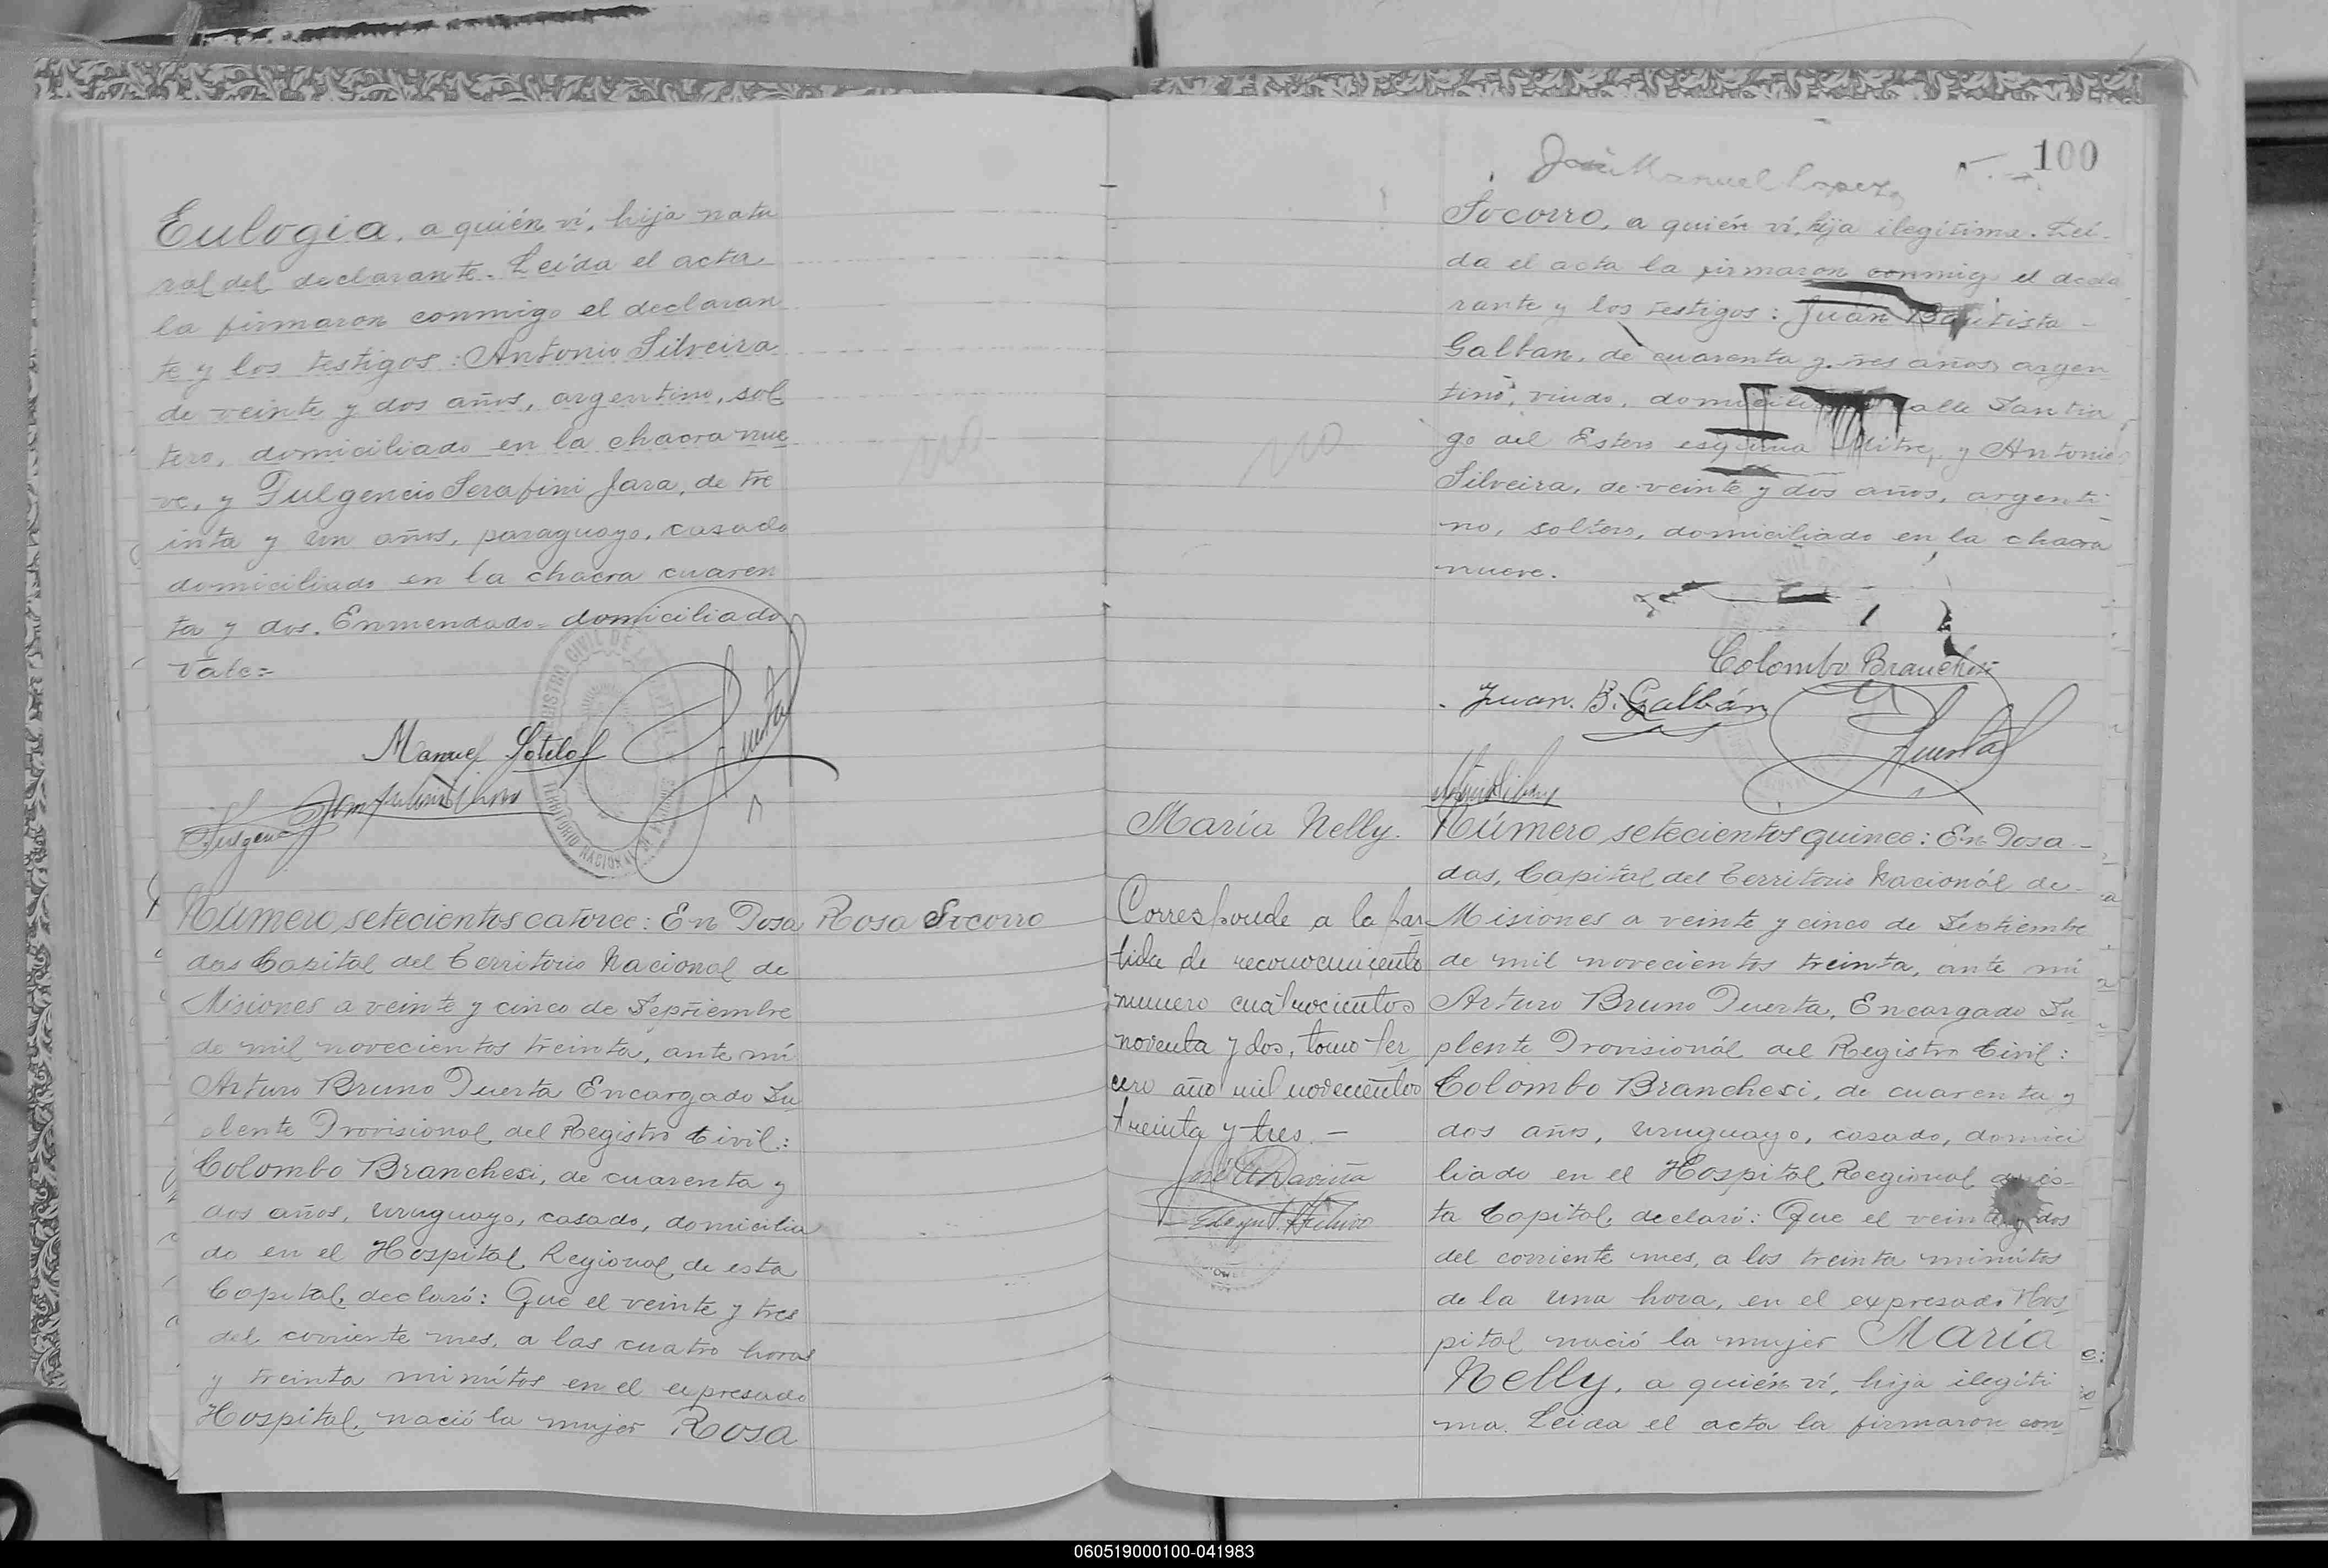 Eulogia, a quién ví, hija natu
ral del declarante. Leída el acta
la firmaron conmigo el declaran
te y los testigos: Antonio Silveira
de veinte y dos años, argentino, sol
tero, domiciliado en la chacra nue
ve, y Fulgencio Serafini Jara, de tre
inta y un años, paraguayo, casado
domiciliado en la chacra cuaren
ta y dos. Enmendado= domiciliado
Vale=
Manuel Sotelo
Número setecientos catorce: En Posa
das Capital del Territorio Nacional de
Misiones a veinte y cinco de Septiembre
de mil novecientos treinta, ante mí
Arturo Bruno Puerta Encargado Su
plente Provisional del Registro Civil:
Colombo Branchesi, de cuarenta y
dos años, uruguayo, casado, domicilia
do en el Hospital Regional de esta
Capital, declaró: Que el veinte y tres
del corriente mes, a las cuatro horas
y treinta minútos en el expresado
Hospital, nació la mujer Rosa
Rosa Socorro
100
José Manuel Lopez
Socorro, a quién ví, hija ilegítima. Leí-
da el acta la firmaron conmigo el decla
rante y los testigos: Juan Bautista -
Galban, de cuarenta y tres años, argen
tino, viudo, domiciliado calle Santia
go del Estero esquina Mitre, y Antonio
Silveira, de veinte y dos años, argenti-
no, soltero, domiciliado en la chacra
nueve.
Colombo Branchesi
Juan. B. Galbán
Puerta
María Nelly.
Corresponde a la par
tida de reconocimiento
numero cuatrocientos
noventa y dos, tomo ter
cero año mil novecientos
treinta y tres. -
Número setecientos quince: En Posa-
das, Capital del Territorio Nacionál de
Misiones a veinte y cinco de Septiembre
de mil novecientos treinta, ante mí
Arturo Bruno Puerta, Encargado Su
plente Provisionál del Registro Civil:
Colombo Branchesi, de cuarenta y
dos años, uruguayo, casado, domici
liado en el Hospital Regional de és-
ta Capital, declaró: Que el veinte y dos
del corriente mes, a los treinta minútos
de la una hora, en el expresado Hos
pital nació la mujer María
Nelly, a quién ví, hija ilegíti
ma. Leída el acta la firmaron con
060519000100-041983